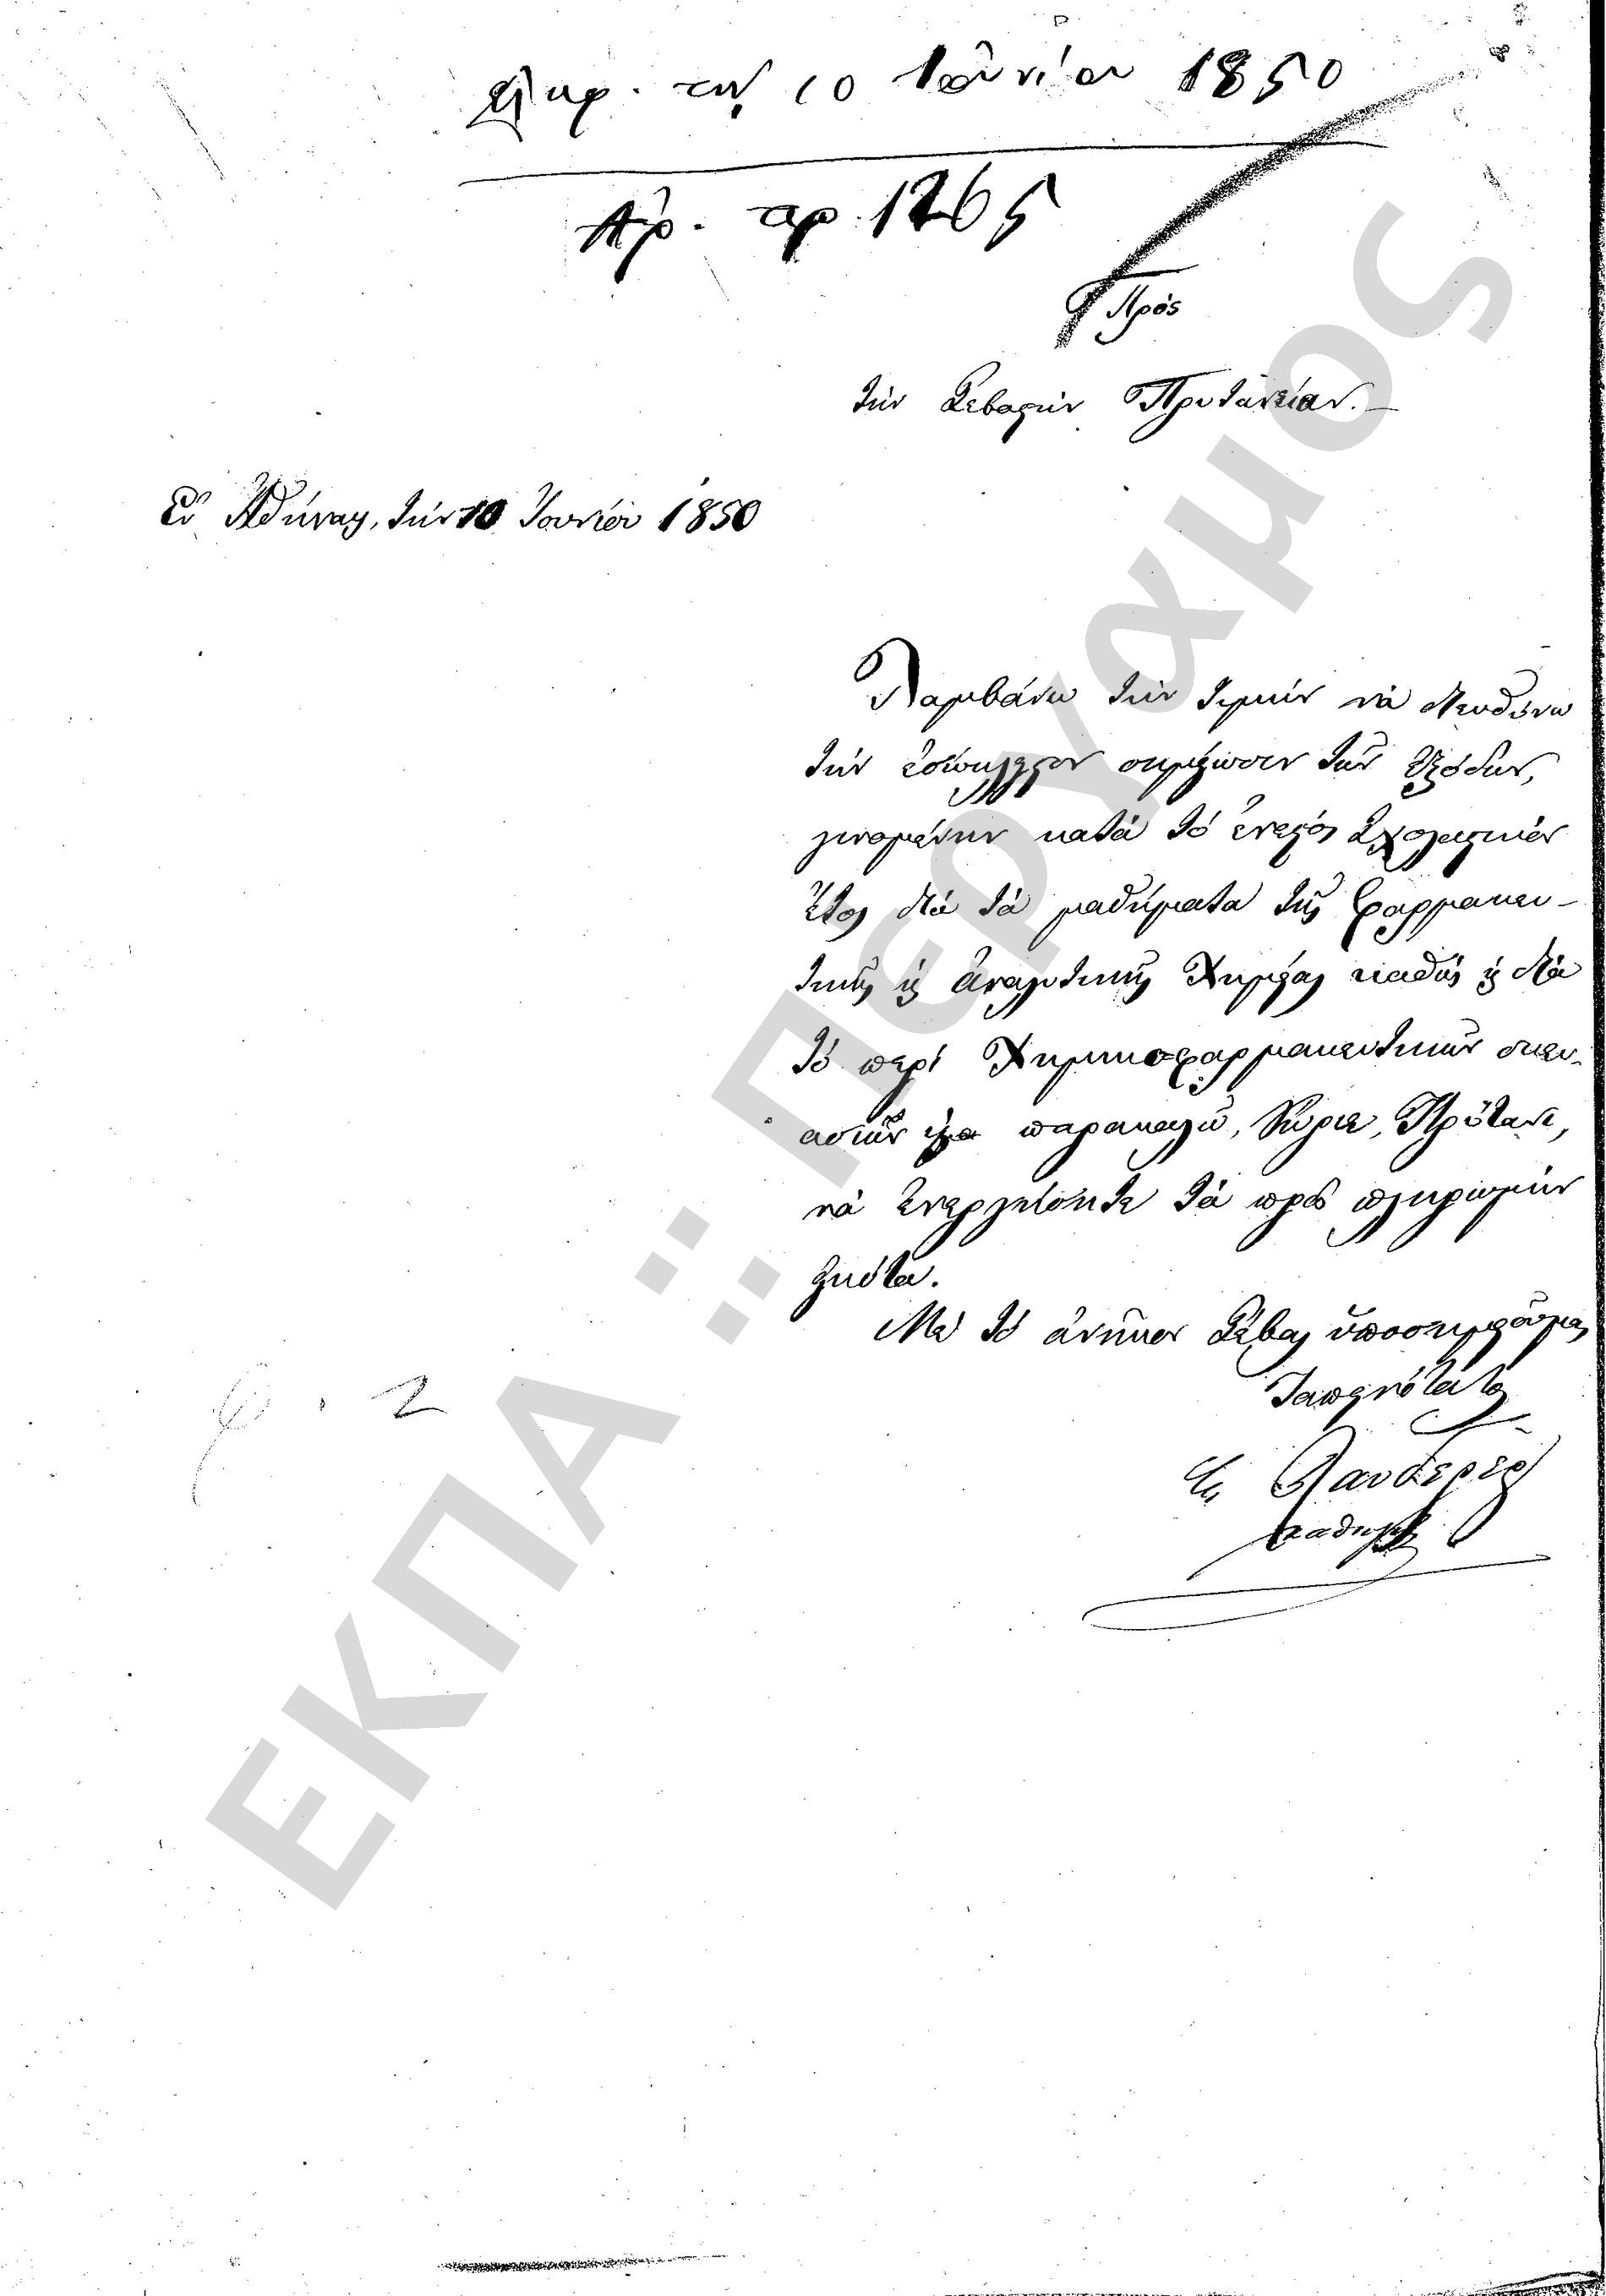 Παρ. τῇ 10 Ἰουνίου 1850
Πρ. αρ. 1265
Πρὸς
τὴν Σεβαστὴν Πρυτανείαν.
Ἐν Ἀθήναις, τὴν 10 Ἰουνίου 1850
Λαμβάνω τὴν τιμὴν νὰ διευθύνω
τὴν ἐσώκλειστον σημείωσιν τῶν ἐξόδων,
γενομένων κατὰ τὸ ἐνεστὸς Σχολαστικὸν
ἔτος διὰ τὰ μαθήματα τῆς φαρμακευ-
τικῆς καὶ ἀναλυτικῆς Χημείας καθὼς καὶ διὰ
τὸ περὶ Χημικοφαρμακευτικῶν σκευ-
ασιῶν παρακαλῶ, Κύριε, Πρύτανι,
νὰ ἐνεργηθῶσι τὰ πρὸς πληρωμὴν
Μὲ τὸ ἀνῆκον σέβας ὑποσημειοῦμαι
Ταπεινότατος
Ξ. Λάνδερερ
καθηγητ.
ΕΚΠΑ :: Περγαμος